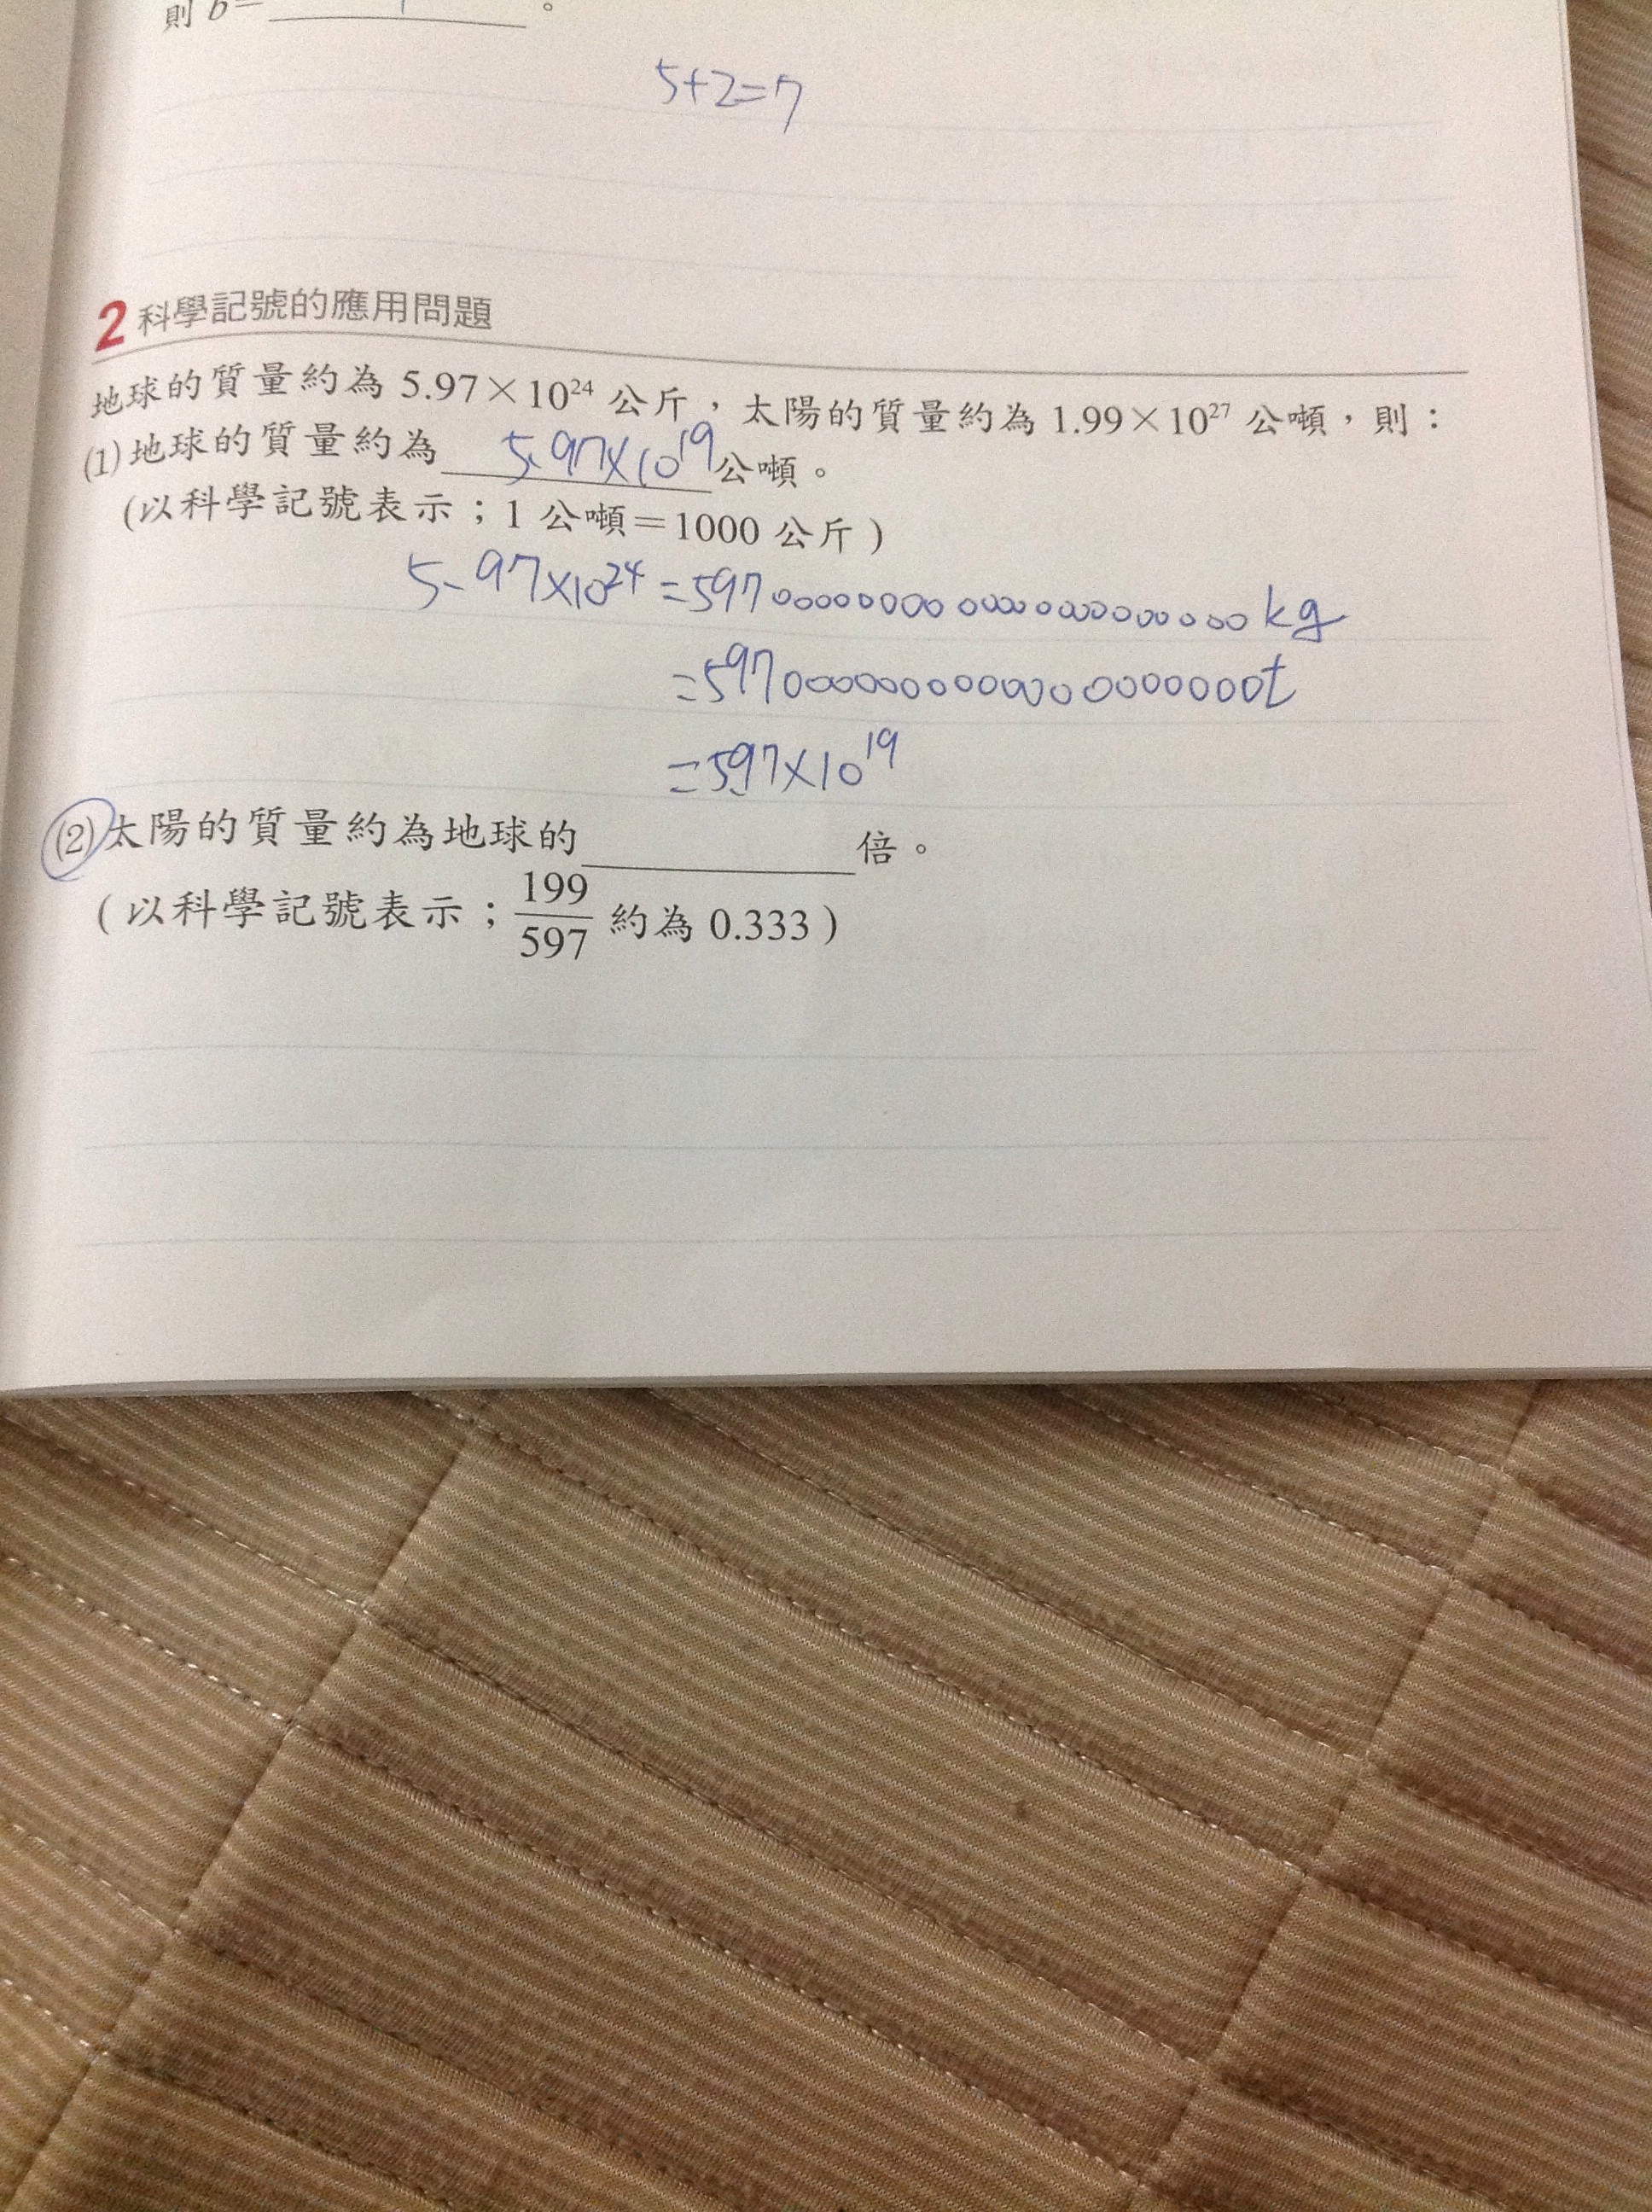 則 b=。
5+2=7
2 科學記號的應用問題
地球的質量約為 5.97×10²⁴ 公斤，太陽的質量約為 1.99×10²⁷ 公噸，則：
(1) 地球的質量約為 5.97×10¹⁹ 公噸。
(以科學記號表示；1 公噸＝1000 公斤)
5.97×10²⁴ =597000000000000000000000 kg
=597000000000000000000t
=597×10¹⁹
(2) 太陽的質量約為地球的 倍。
(以科學記號表示；199/597 約為 0.333)